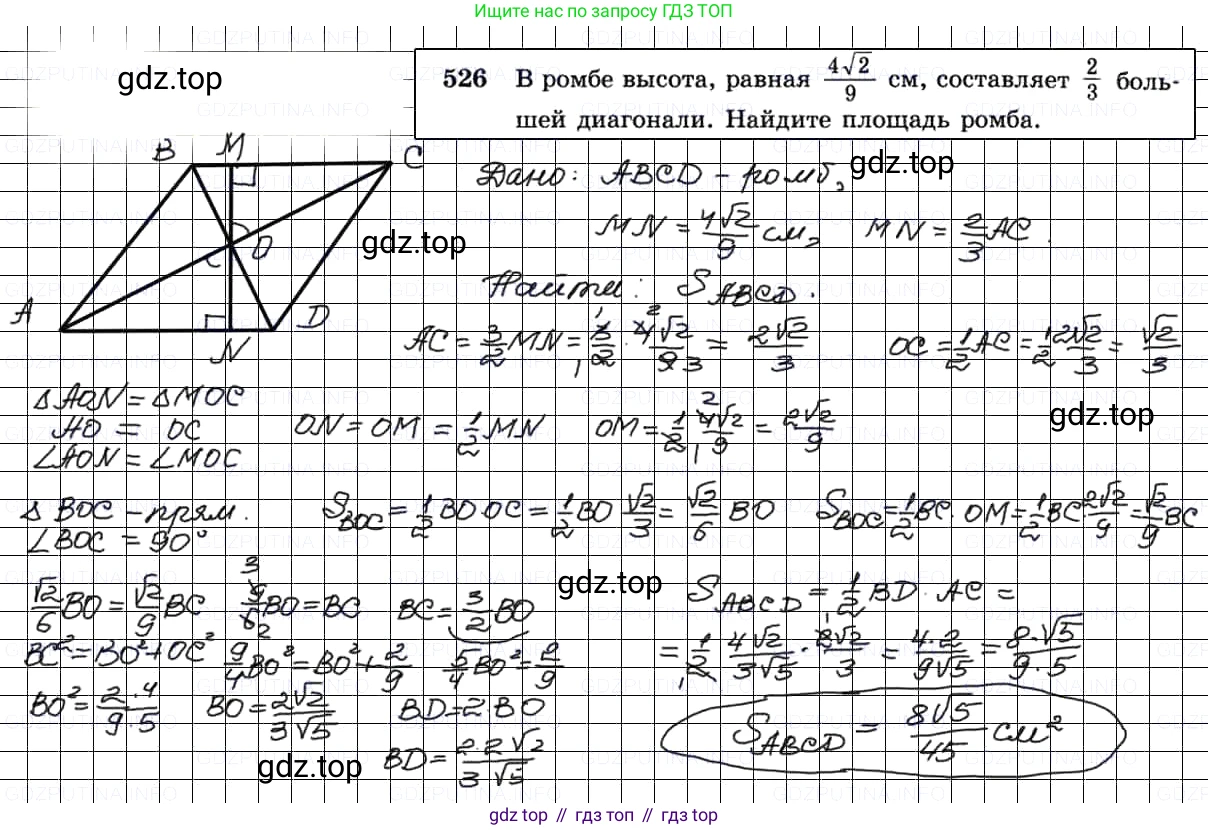 Ищите нас по запросу ГДЗ ТОП
gdz.top
526 В ромбе высота, равная 4√2/9 см, составляет 2/3 боль-
шей диагонали. Найдите площадь ромба.
B M C
gdz.top
Дано: ABCD - ромб,
MN = 4√2/9 см, MN = 2/3 AC.
O
gdz.top
Найти: S_ABCD.
A D
N
AC = 3/2 MN = 3/2 · 4√2/9 = 2√2/3 OC = 1/2 AC = 1/2 2√2/3 = √2/3
△AON = △MOC
gdz.top
AO = OC ON = OM = 1/2 MN OM = 1/2 4√2/9 = 2√2/9
∠AON = ∠MOC
△BOC - прям. S_BOC = 1/2 BO·OC = 1/2 BO √2/3 = √2/6 BO S_BOC = 1/2 BC·OM = 1/2 BC 2√2/9 = √2/9 BC
∠BOC = 90°
gdz.top
√2/6 BO = √2/9 BC 9/6 BO = BC BC = 3/2 BO S_ABCD = 1/2 BD·AC =
BC² = BO² + OC² 9/4 BO² = BO² + 2/9 5/4 BO² = 2/9 = 1/2 · 4√2/3√5 · 2√2/3 = 4·2/9√5 = 8·√5/9·5
BO² = 2·4/9·5 BO = 2√2/3√5 BD = 2·BO
S_ABCD = 8√5/45 см²
gdz.top
BD = 2·2√2/3√5
gdz.top // гдз топ // gdz top